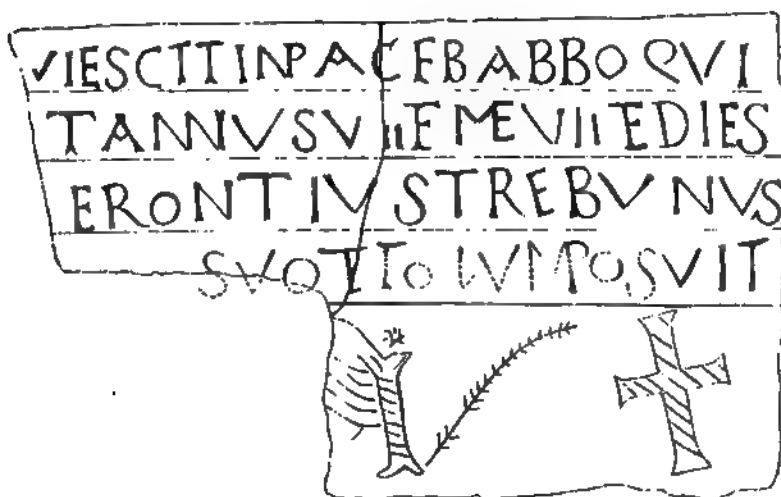 VIESCTTINPACFBABBOQVI
TANNVSVIIFMEVIITEDIES
ERONTIVSTREBVNVS
SVOTITOLVMPOSVIT